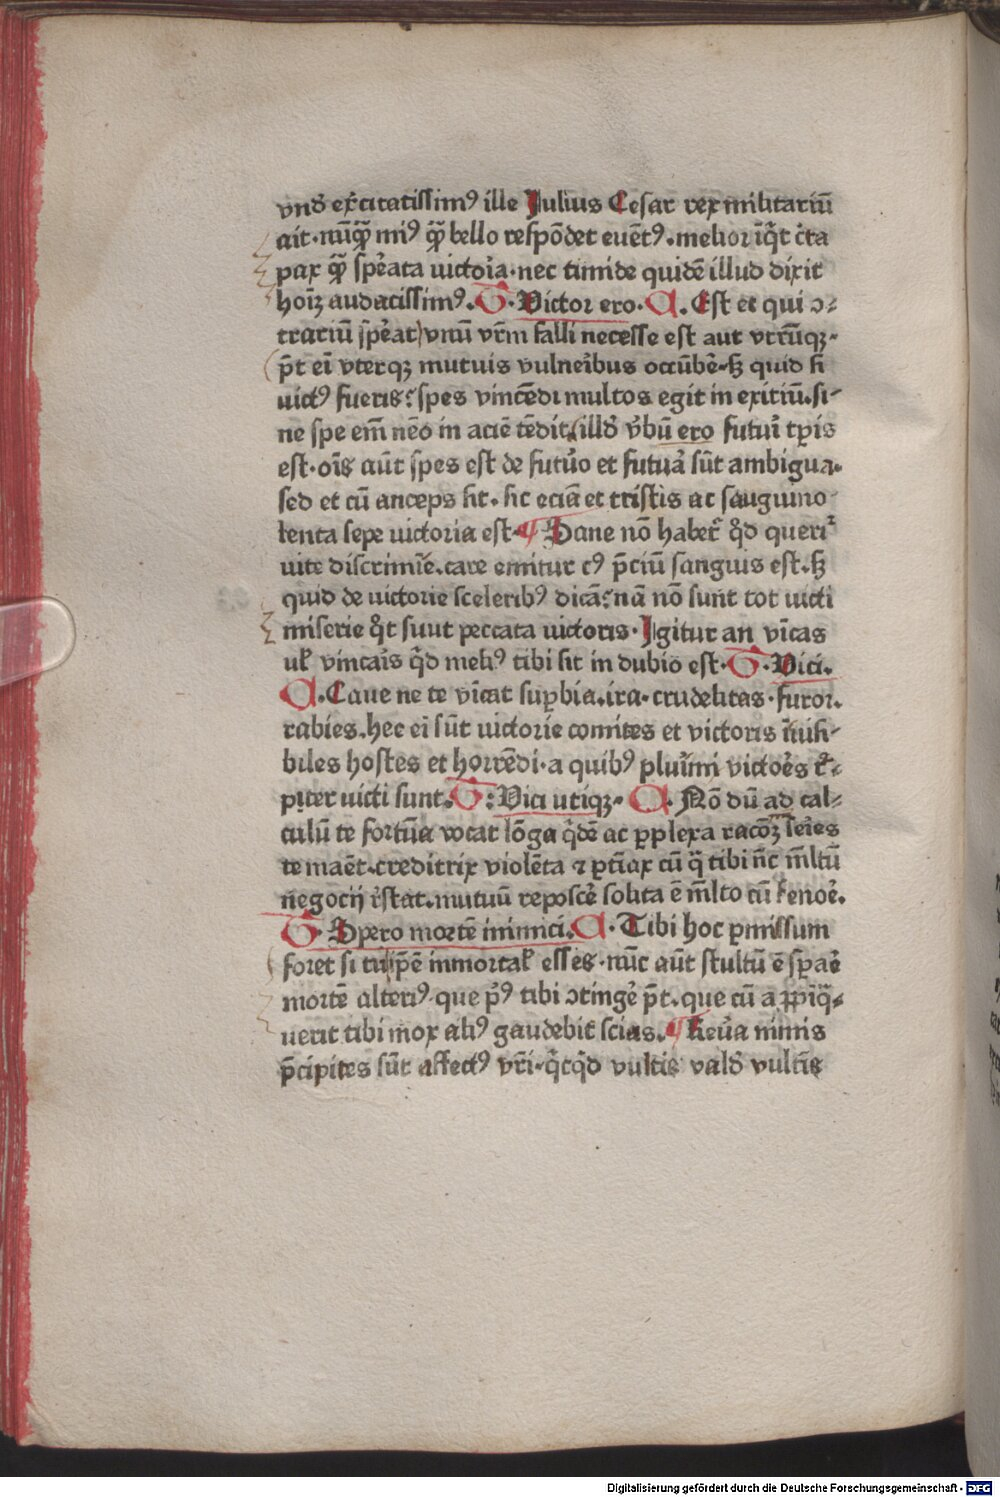 vnd̄ ex̄citatissimꝰ ille Julius Cesar rex militariū
ait·nūq̄ꝫ miꝰ q̄ꝫ bello respōdet euētꝰ·melior īq̄t c̄ta
pax q̄ꝫ sp̄eata uictoīa·nec timide quidē illud dixit
hoīꝫ audacissimꝰ. G·Victor ero·A. Est et qui ɔ⸗
trariū sp̄eat)vnū vr̄m falli necesse est aut vtrūqꝫ·
p̄t eī vterqꝫ mutuis vulneribus occūbē·sꝫ quid si
uictꝰ fueris:spes vincēdi multos egit in exitiū.si⸗
ne spe em̄ nēo in aciē tēdit.illd̄ v̄bū ero futuī tꝑis
est·oīs aūt spes est de futūo et futuā sūt ambigua.
sed et cū anceps sit·sic eciā et tristis ac sanguino⸗
lenta sepe uictoria est·¶ Sane nō habet᷑ qd̄ queri᷑
uite discrimīe.care emitur cꝰ p̄ciū sanguis est.sꝫ
quid de uictorie sceleribꝰ dicā:nā nō sunt tot uicti
miserie qt̄ suut peccata uictoris·Igitur an vīcas
ul̄ vincaīs qd̄ meliꝰ tibi sit in dubio est·G·Vici.
A.Caue ne te vīcat suꝑbia.ira·crudelitas·furor.
rabies.hec eī sūt uictorie comites et victoris īuisi⸗
biles hostes et horrēdi·a quibꝰ pluīmi victoēs t̄⸗
piter uicti sunt.G:Vici utiqꝫ·A·Nō dū ad cal⸗
culū te fortūa vocat lōga q̄dē ac ꝑplexa racōꝫ seīes
te maēt.creditrix violēta ⁊ ꝑtīax cū q̄ tibi n̄c ml̄tū
negocij r̄stat.mutuū reposcē solita ē ml̄to cū fenoē.
G·Spero mortē inimici.A·Tibi hoc ꝑmissum
foret si tuīpē inmortal̄ esses·nūc aūt stultū ē sꝑaē
mortē alteriꝰ·que pꝰ tibi ɔtingē p̄t.que cū aꝓpīq̄⸗
uerit tibi mox aliꝰ gaudebit scias.¶Reūa nimis
p̄cipites sūt affectꝰ vr̄i·qc̄qd̄ vultis vald̄ vultīs
Digitalisierung gefördert durch die Deutsche Forschungsgemeinschaft - DFG